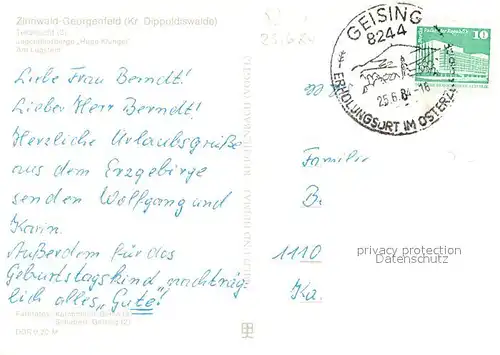 Zinnwald-Georgenfeld (Kr. Dippoldiswalde)
Teilansicht (2)
Jugendherberge „Hugo
Am Lugstein
25.6.84
GEISING
8244
25.6.84-16
ERHOLUNGSORT IM OSTERZ
10
Liebe Frau Berndt!
Lieber Herr Berndt!
Herzliche Urlaubsgrüße
aus dem Erzgebirge
senden Wolfgang und
Karin.
Außerdem für das
Geburtstagskind „nachträg-
lich alles „Gute!
Familie
B.
1110
Ka.
privacy protection
Datenschutz
BILD UND HEIMAT REICHENBACH (VOGTL)
Geising (2)